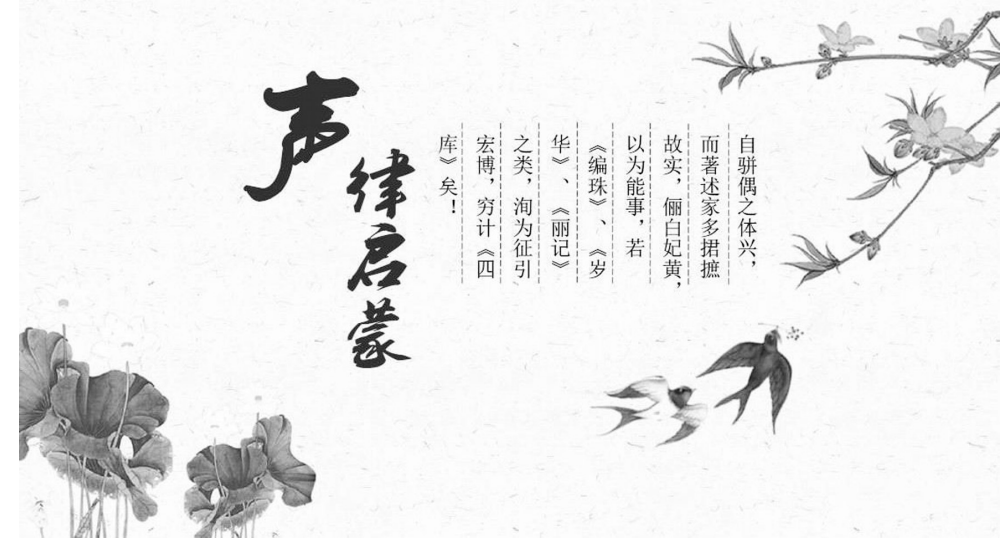 声律启蒙
自骈偶之体兴，
而著述家多捃摭
故实，俪白妃黄，
以为能事，若
《编珠》、《岁
华》、《丽记》
之类，洵为征引
宏博，穷计《四
库》矣！